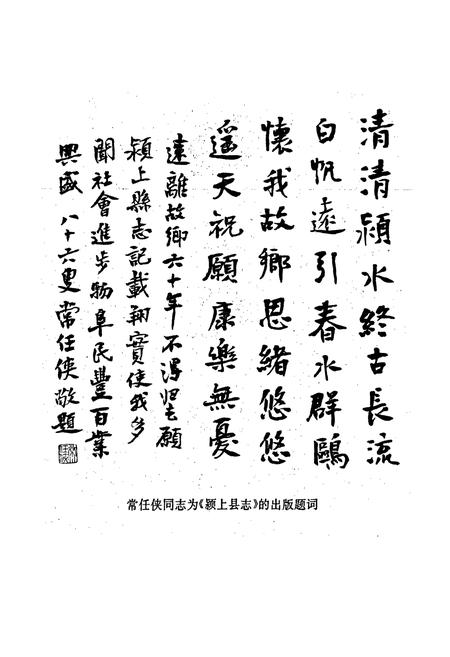 清清颍水終古長流
白帆遠引春水群鷗
懷我故鄉思緒悠悠
遥天祝願康樂無憂
遠離故鄉六十年不得归去願
颍上縣志記載翔實使我多
聞社會進步物阜民豐百業
興盛 八十六叟常任俠敬題
常任侠同志为《颍上县志》的出版题词